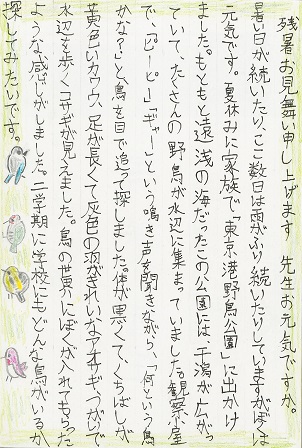 残暑お見舞い申し上げます 先生お元気ですか。
暑い日が続いたり、ここ数日は雨がふり続いたりしていますがぼくは
元気です。夏休みに家族で「東京港野鳥公園」に出かけ
ました。もともと遠浅の海だったこの公園には、干潟が広がっ
ていて、たくさんの野鳥が水辺に集まっていました。観察小屋
で、「ピーピー」「ギャー」という鳴き声を聞きながら、「何という鳥
かな?」と、鳥を目で追って探しました。体が黒くて、くちばしが
黄色いカワウ、足が長くて灰色の羽がきれいなアオサギ、つがいで
水辺を歩くコサギが見えました。鳥の世界にぼくが入れてもらった
ような感じがしました。二学期に学校にもどんな鳥がいるか
探してみたいです。